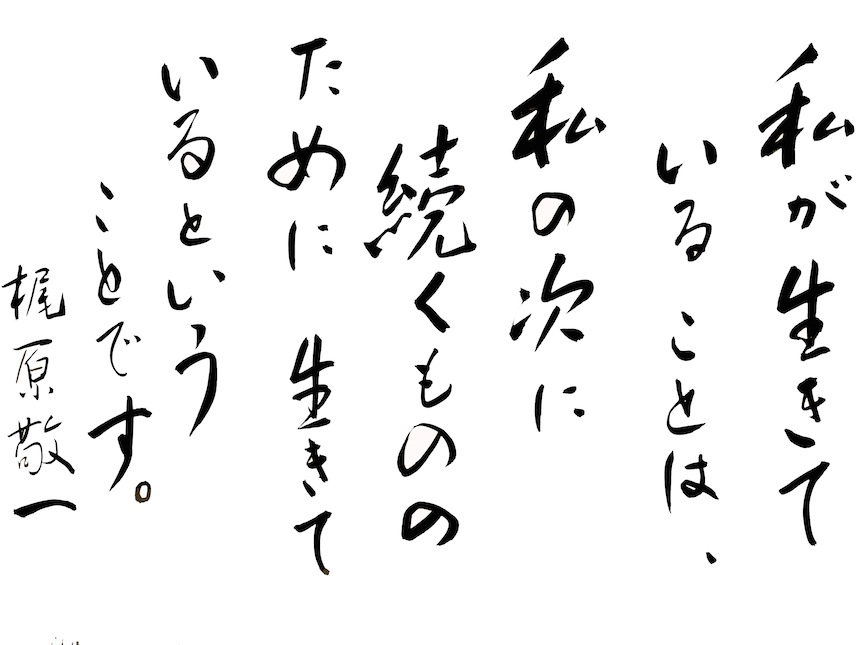 私が生きて
いることは、
私の次に
続くものの
ために 生きて
いるという
ことです。
梶原敬一